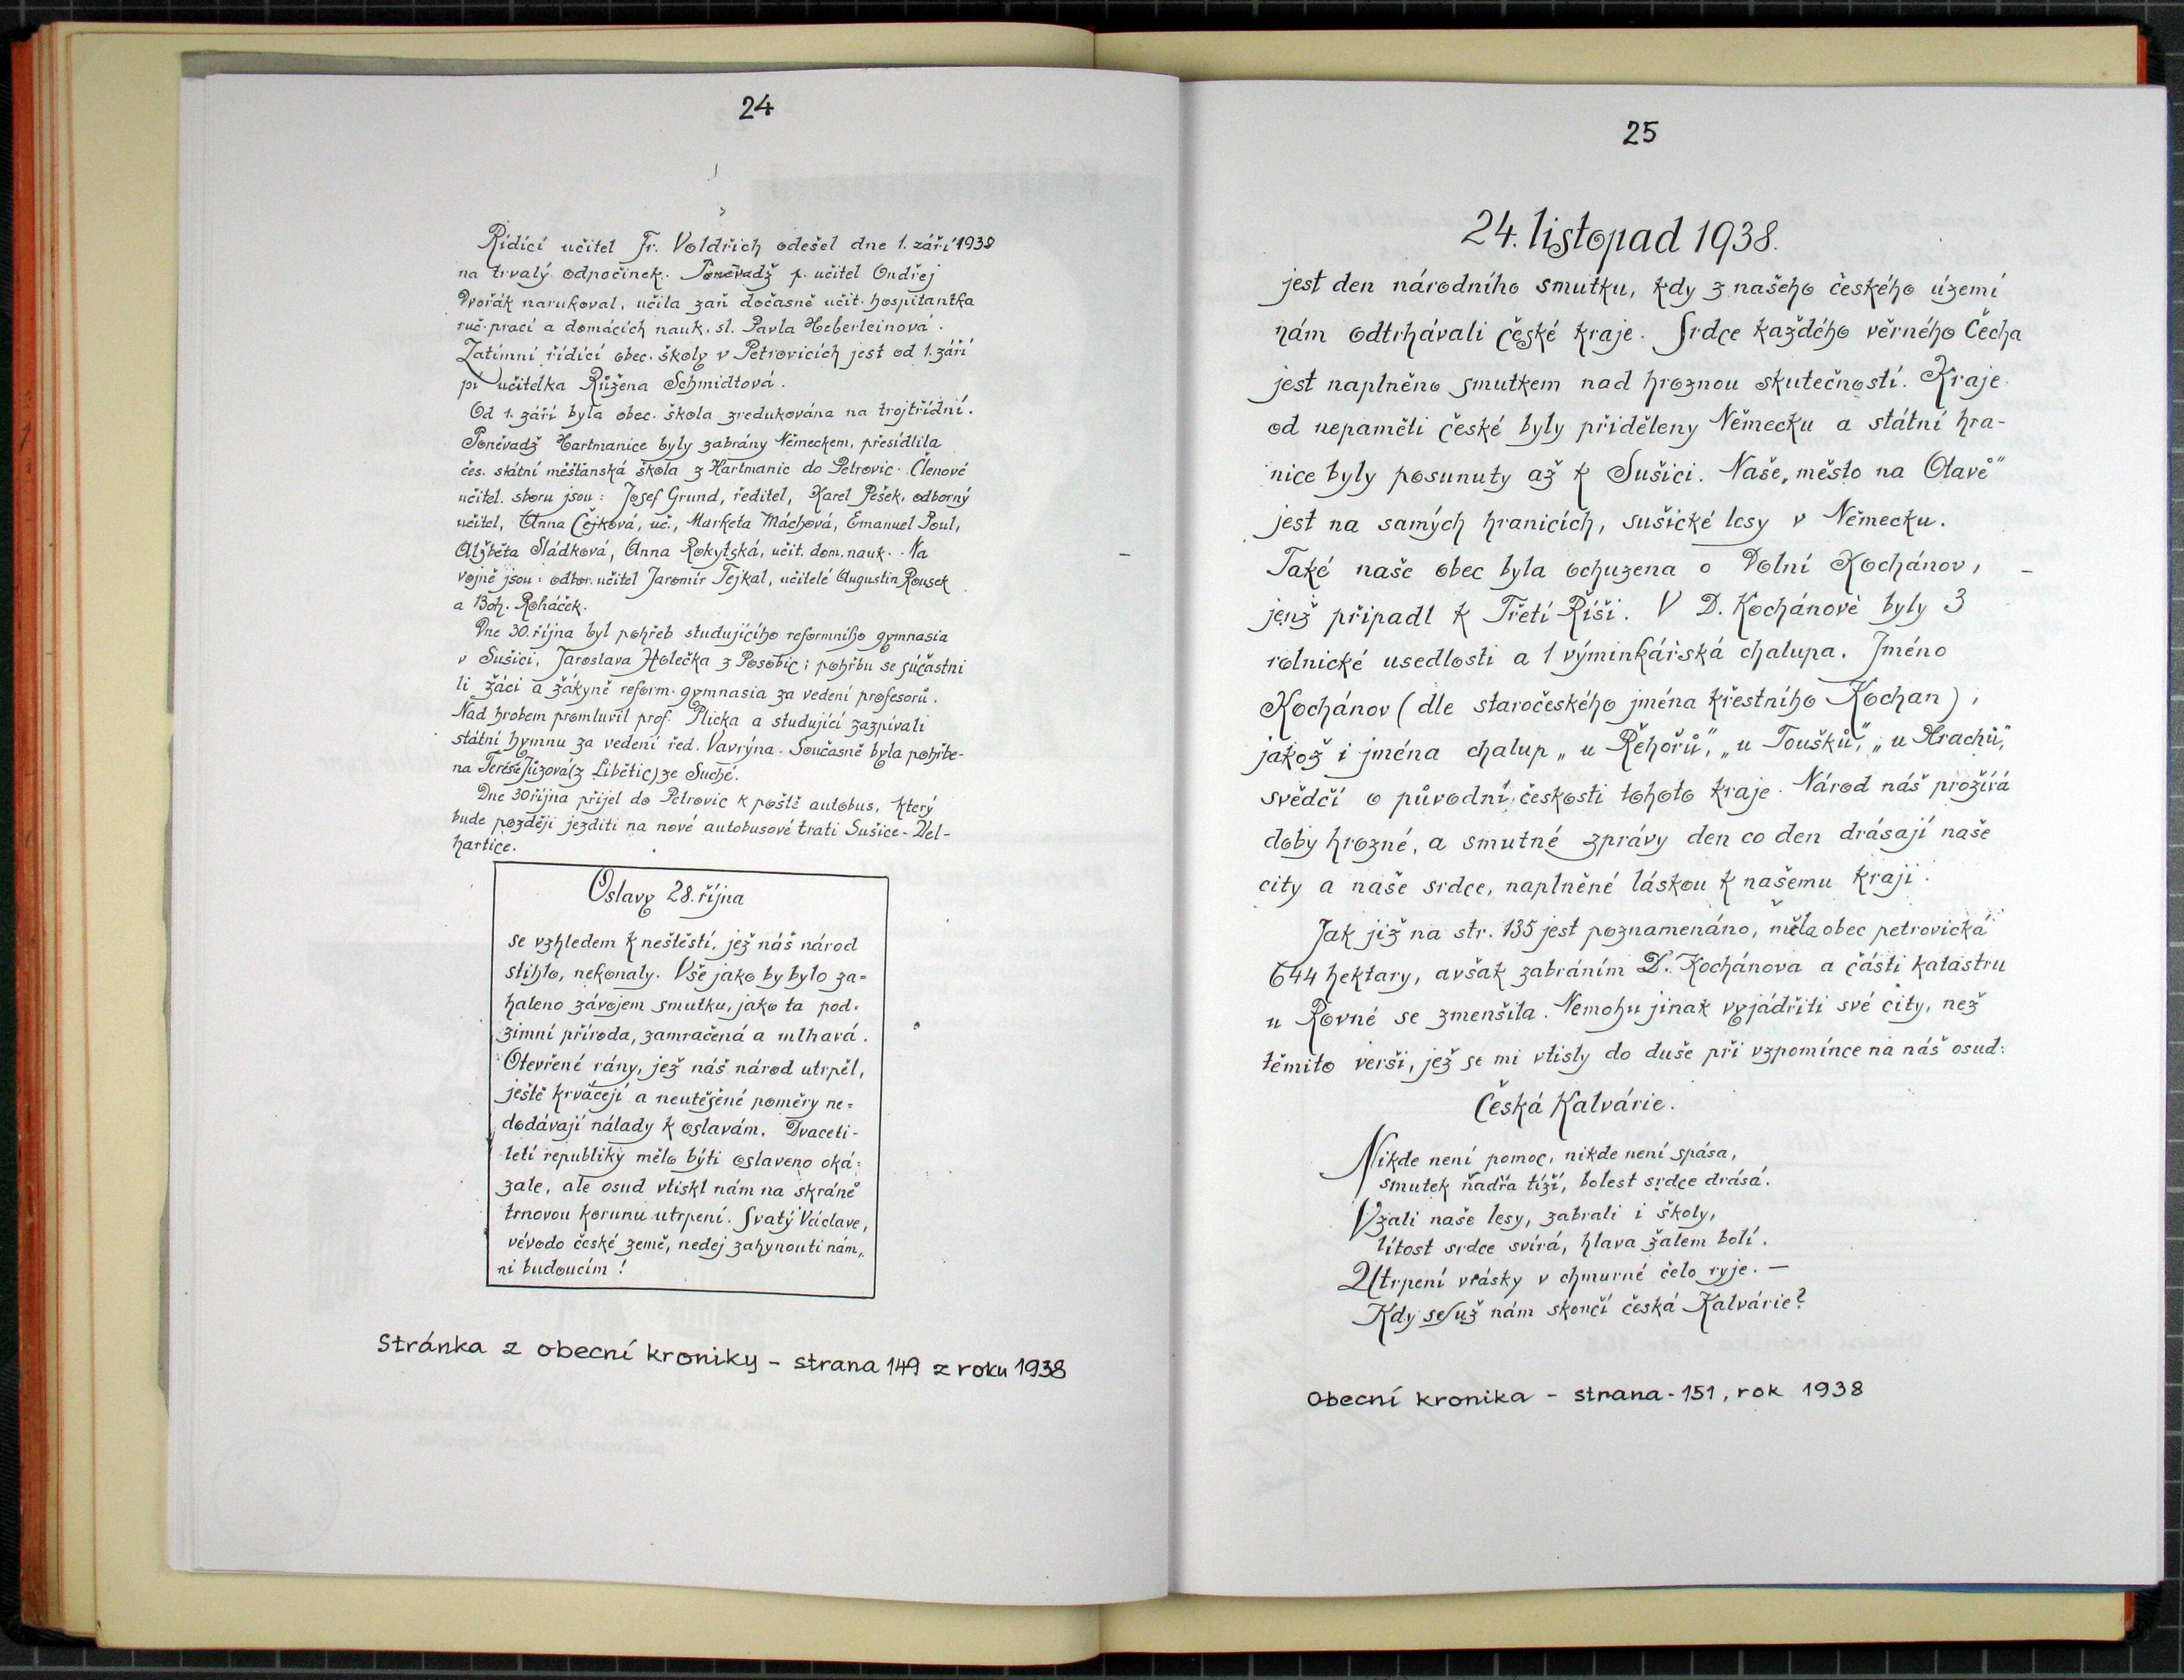 24
Řídící učitel Fr. Voldřich odešel dne 1. září 1938
na trvalý odpočinek. Poněvadž p. učitel Ondřej
Dvořák narukoval, učila zaň dočasně učit. hospitantka
ruč. prací a domácích nauk. sl. Pavla Heberleinová.
Zatímní řídící obec. školy v Petrovicích jest od 1. září
pí učitelka Růžena Schmidtová.
Od 1. září byla obec. škola zredukována na trojtřídní.
Poněvadž Hartmanice byly zabrány Německem, přesídlila
čes. státní měšťanská škola z Hartmanic do Petrovic. Členové
učitel. sboru jsou: Josef Grund, ředitel, Karel Pešek, odborný
učitel, Anna Čejková, uč., Marketa Máchová, Emanuel Poul,
Alžběta Sládková, Anna Rokytská, učit. dom. nauk. Na
vojně jsou: odbor. učitel Jaromír Tejkal, učitelé Augustin Rousek
a Boh. Roháček.
Dne 30. října byl pohřeb studujícího reformního gymnasia
v Sušici, Jaroslava Holečka z Posobic; pohřbu se súčastni
li žáci a žákyně reform. gymnasia za vedení profesorů.
Nad hrobem promluvil prof. Plicka a studující zazpívali
státní hymnu za vedení řed. Vavrýna. Současně byla pohřbe-
na Terésie Jůzová (z Libětic) ze Suché.
Dne 30 října přijel do Petrovic k poště autobus, který
bude později jezditi na nové autobusové trati Sušice - Vel-
hartice.
Oslavy 28. října
se vzhledem k neštěstí, jež náš národ
stihlo, nekonaly. Vše jako by bylo za=
haleno závojem smutku, jako ta pod=
zimní příroda, zamračená a mlhavá.
Otevřené rány, jež náš národ utrpěl,
ještě krvácejí a neutěšené poměry ne=
dodávají nálady k oslavám. Dvaceti-
letí republiky mělo býti oslaveno oká=
zale, ale osud vtiskl nám na skráně
trnovou korunu utrpení. Svatý Václave,
vévodo české země, nedej zahynouti nám,
ni budoucím!
Stránka z obecní kroniky - strana 149 z roku 1938
25
24. listopad 1938.
jest den národního smutku, kdy z našeho českého území
nám odtrhávali české kraje. Srdce každého věrného Čecha
jest naplněno smutkem nad hroznou skutečností. Kraje
od nepaměti české byly přiděleny Německu a státní hra-
nice byly posunuty až k Sušici. Naše „město na Otavě"
jest na samých hranicích, sušické lesy v Německu.
Také naše obec byla ochuzena o Dolní Kochánov,
jenž připadl k Třetí Říši. V D. Kochánově byly 3
rolnické usedlosti a 1 výminkářská chalupa. Jméno
Kochánov (dle staročeského jména křestního Kochan),
jakož i jména chalup „u Řehořů", „u Toušků", „u Hrachů",
svědčí o původní českosti tohoto kraje. Národ náš prožírá
doby hrozné, a smutné zprávy den co den drásají naše
city a naše srdce, naplněné láskou k našemu kraji.
Jak již na str. 135 jest poznamenáno, měla obec petrovická
644 hektary, avšak zabráním D. Kochánova a části katastru
u Rovné se zmenšila. Nemohu jinak vyjádřiti své city, než
těmito verši, jež se mi vtisly do duše při vzpomínce na náš osud:
Česká Kalvárie.
Nikde není pomoc, nikde není spása,
smutek ňadra tíží, bolest srdce drásá.
Vzali naše lesy, zabrali i školy,
lítost srdce svírá, hlava žalem bolí.
Utrpení vrásky v chmurné čelo ryje. —
Kdy se už nám skončí česká Kalvárie?
Obecní kronika - strana - 151, rok 1938